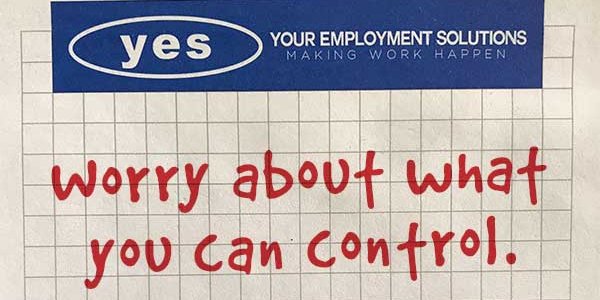 yes YOUR EMPLOYMENT SOLUTIONS
MAKING WORK HAPPEN
worry about what
you can control.